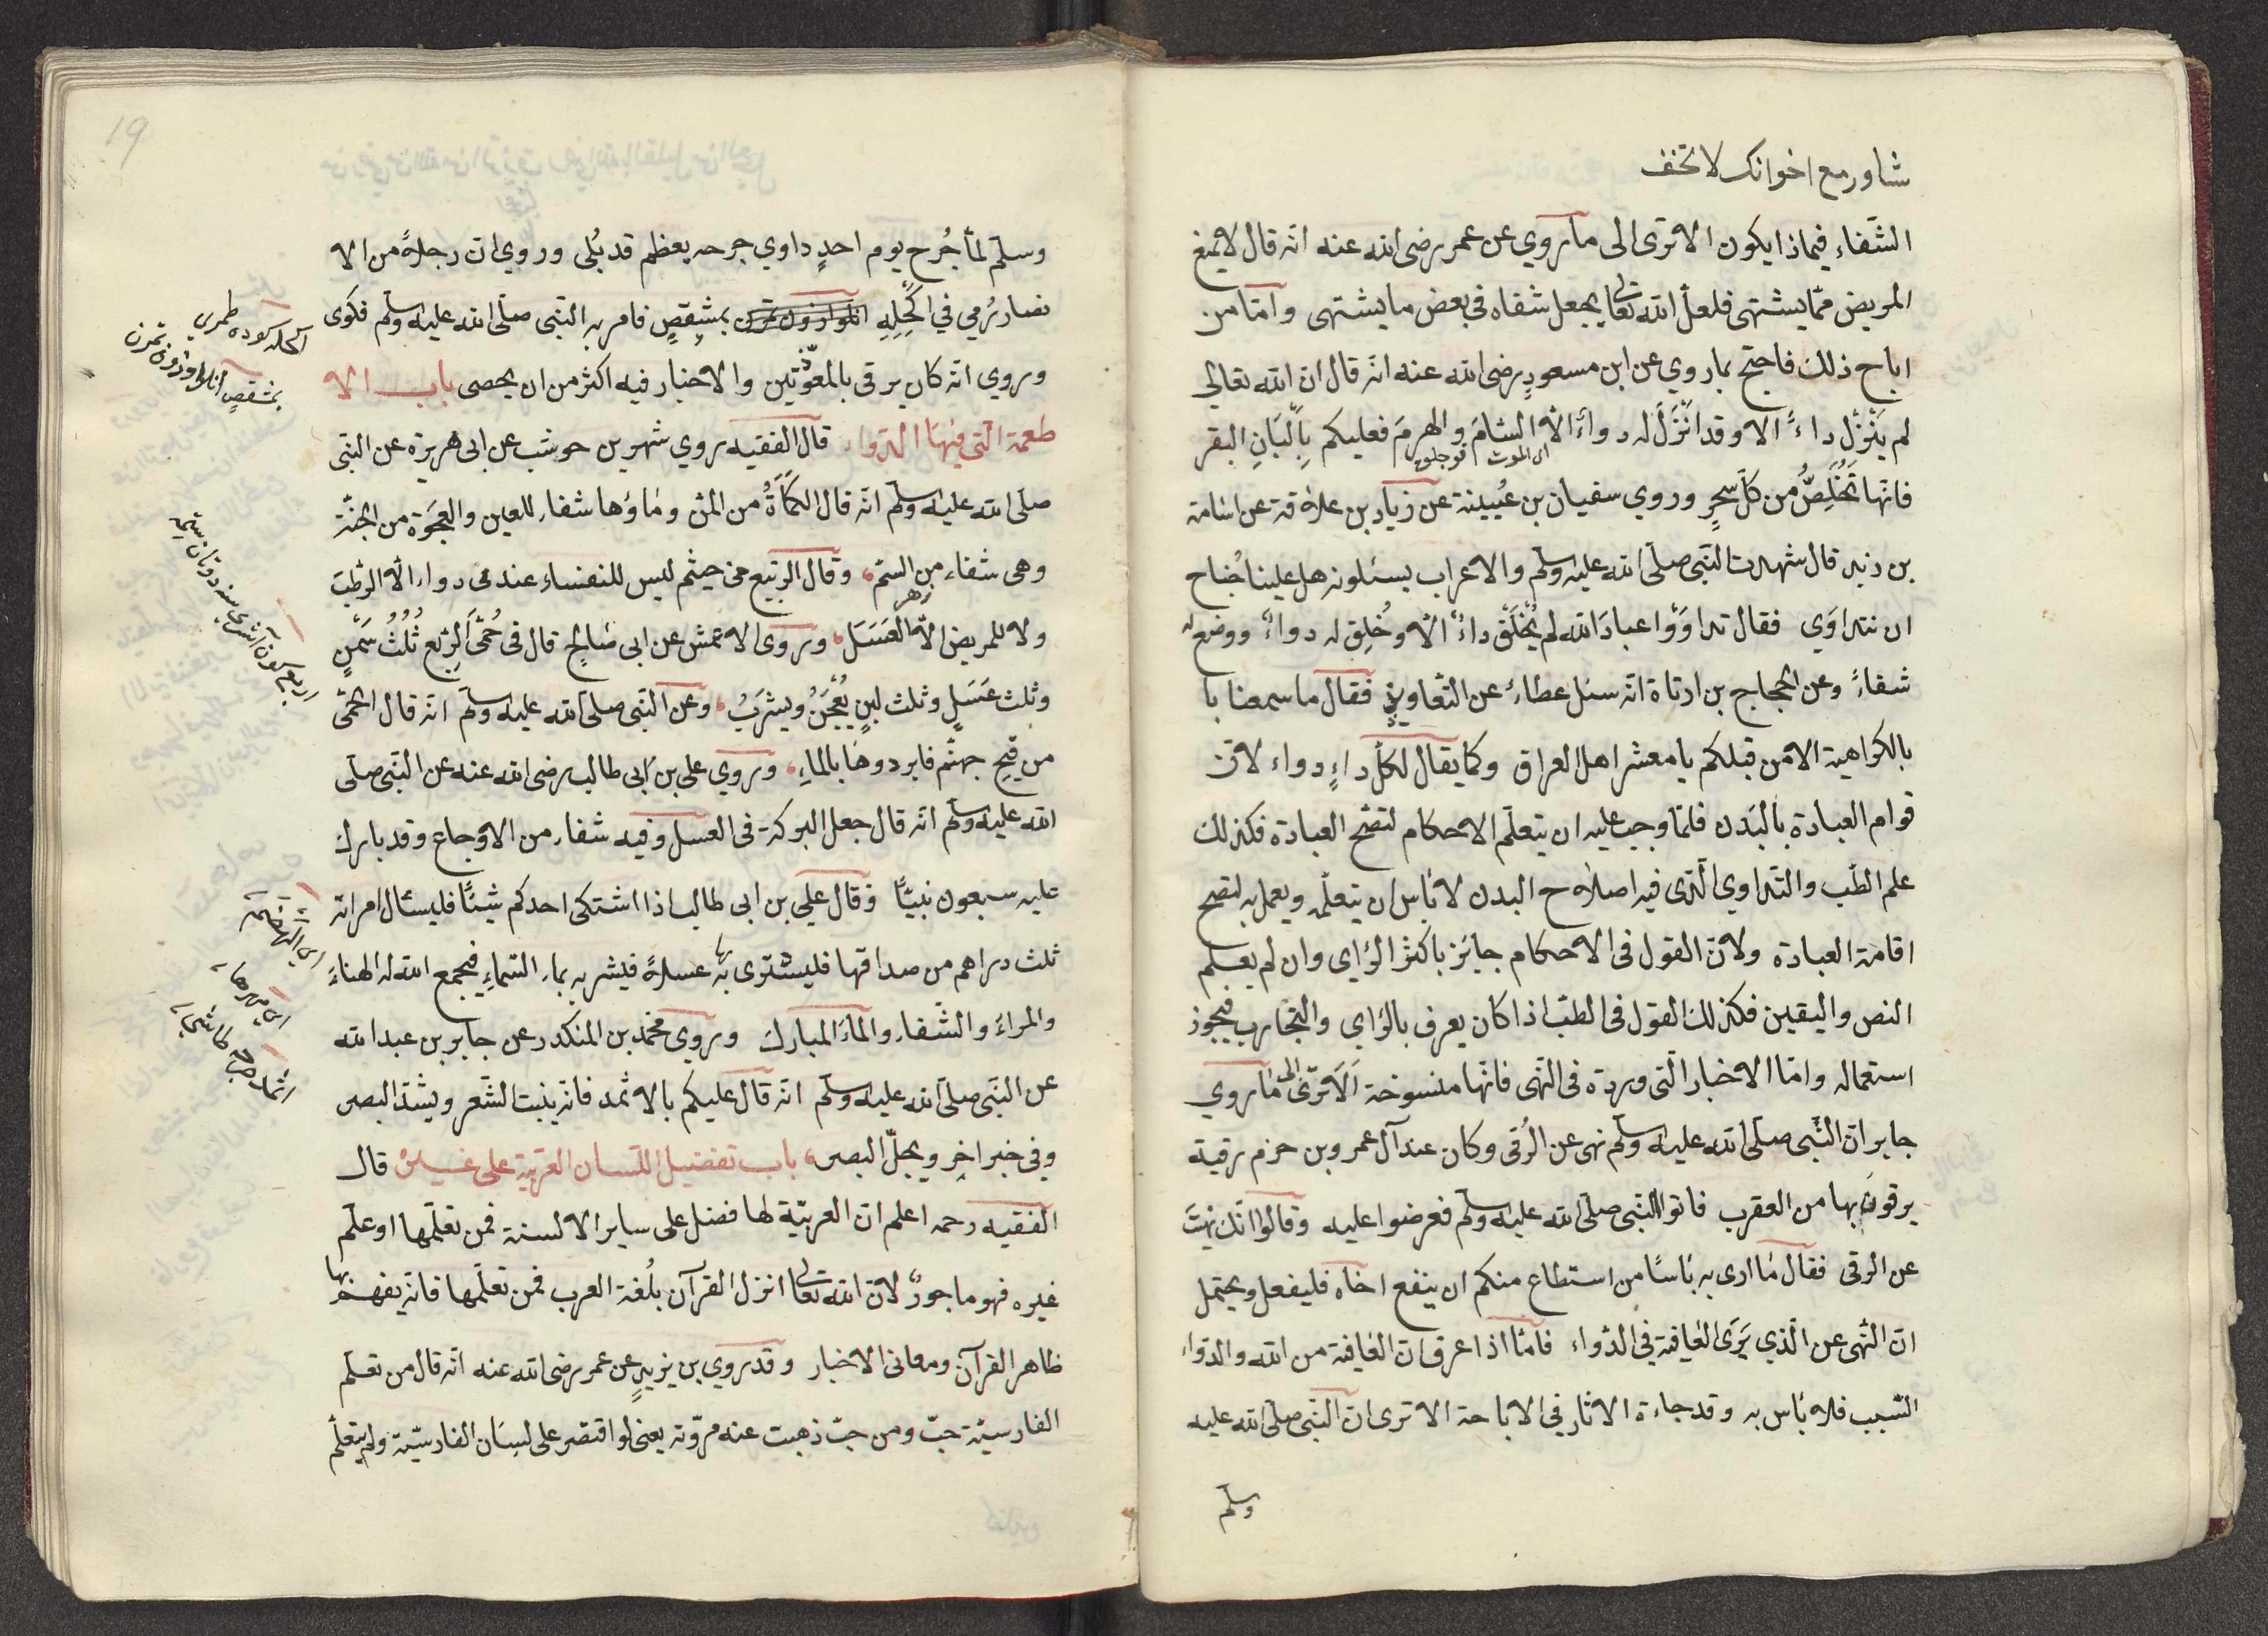 شاور مع اخوانك لا تخف
الشفاء فيماذا يكون الا ترى الى ما روي عن عمر رضى الله عنه انه قال لا يمنع
المريض مما يشتهى فلعل الله تعالى يجعل شفاه في بعض ما يشتهى وامّا من
اباح ذلك فاحتج بما روي عن ابن مسعودٍ رضى الله عنه انه قال ان الله تعالى
لم يَنْزل داءً الا وقد انزل له دواءً الا السّامَ والهرمَ فعليكم بِالْبَانِ البقر
اى الموت قوجلق
فانها تَخْلِصُ من كل سحرٍ وروي سفيان بن عُيينة عن زياد بن علاقة عن اسامة
بن زيد قال شهدت النّبى صلى الله عليه وسلم والاعراب يسئلونه هل علينا جُناح
ان نتداوى فقال تداوَوْا عبادَ الله لم يُخْلَقْ داءٌ الّا وخُلِق له دواءٌ ووضع له
شفاءً وعن الحجاج بن ارتاة انه سئل عطاء عن التّعاويذِ فقال ما سمعنا با
بالكراهية الا من قبلكم يا معشر اهل العراق وكما يقال لكل داءٍ دواء لان
قوام العبادة بالبَدن فلمّا وجب عليه ان يتعلّم الاحكام لتصّح العبادة فكذلك
علم الطّب والتداوي الّذى فيه اصلاح البدن لا بَاس ان يتعلّمه ويعمل به لتصح
اقامة العبادة ولانّ القول فى الاحكام جايز باكثر الرّاى وان لم يعلم
النص واليقين فكذلك القول فى الطبّ اذا كان يعرف بالرّاى والتّجارب فيجوز
استعماله وامّا الاخبار الّتى وردة فى النّهى فانّها منسوخة اَلا ترى الى مَا روي
جابر انّ النّبى صلى الله عليه وسلم نهى عن الرُقى وكان عند آل عمرو بن حزم رقية
يرقون بها من العقرب فاتوا النّبى صلى الله عليه وسلم فعرضوا عليه وقالوا انّك نهيتَ
عن الرقى فقال مَا ارى به بَاسًا من استطاع منكم ان ينفع اخاه فليفعل ويحتمل
انّ النّهى عن الّذي يَرَى العَافية في الدّواء فامّا اذا عرف انّ العَافية من الله والدّواء
السّبب فلا بَاس به وقد جاءة الاثار في الاباحة الا ترى انّ النّبى صلى الله عليه
وسلم
19
وسلّم لمّا جُرح يوم احدٍ داوي جرحه بعظم قد بُلى وروي انّ رجلاً من الا
نصار رُمي في اكحِلِهِ بمِشقصٍ فامر به النّبى صلّى الله عليه وسلّم فكوى
وروي انّه كان يرقى بالمعوّذتين والاخبار فيه اكثر من ان يحصى باب الا
طعمة الّتى فيها الدّواء قال الفقيه روي شهر بن حوشب عن ابى هريرة عن النبّى
صلى الله عليه وسلم انه قال الكمأةُ من المنّ ومَاؤها شفاء للعين والعجوَة من الجنّة
وهى شفاء من السّم وقال الرّبيع من حيثم ليس للنفساء عندى دواء الّا الرّطب
زهر
ولا للمريض الّا العَسَل وروى الاعمش عن ابى صَالحٍ قال فى حُمَّى الرّبع ثُلُثُ سَمْنٍ
وثلث عَسَلٍ وثلث لبنٍ يُعْجَنُ ويشرَبُ وعن النّبى صلى الله عليه وسلّم انه قال الحمّى
من قيح جهنّم فابردوهَا بالماءِ وروي على بن ابى طالب رضى الله عنه عن النّبى صلّى
الله عليه وسلّم انّه قال جعل البركة فى العسل وفيه شفاء من الاوجاع وقد بارك
عليه سبعون نبيًّا وقال علي بن ابى طالب اذا اشتكى احدكم شيئًا فليسئال امراته
ثلث دراهم من صداقها فليشترى به عسلاً فيشربه بماء السّماءِ فيجمع الله له الهناءَ
والمراءَ والشّفاء والماءَ المبارك وروي محمّد بن المنكدر عن جابر بن عبد الله
عن النّبى صلى الله عليه وسلّم انّه قال عليكم بالاثمد فانّه ينبت الشّعر ويشدّ البصر
وفي خبر اخر ويجلّ البصر باب تفضيل اللّسان العربّية على غيره قال
الفقيه رحمه اعلم ان العربيّة لها فضل على ساير الالسنة فمن تعلّمها او علّم
غيره فهو ماجورٌ لانّ الله تعالى انزل القرآن بلُغة العرب فمن تعلّمها فانّه يفهم بها
ظاهر القرآن ومعانى الاخبار وقد روي بن يزيدٍ عن عمر رضى الله عنه انّه قال من تعلّم
الفارسيّة خبّ ومن خبّ ذهبت عنه مروّته يعنى لو اقتصر على لسَان الفارسيّة ولم يتعلّم